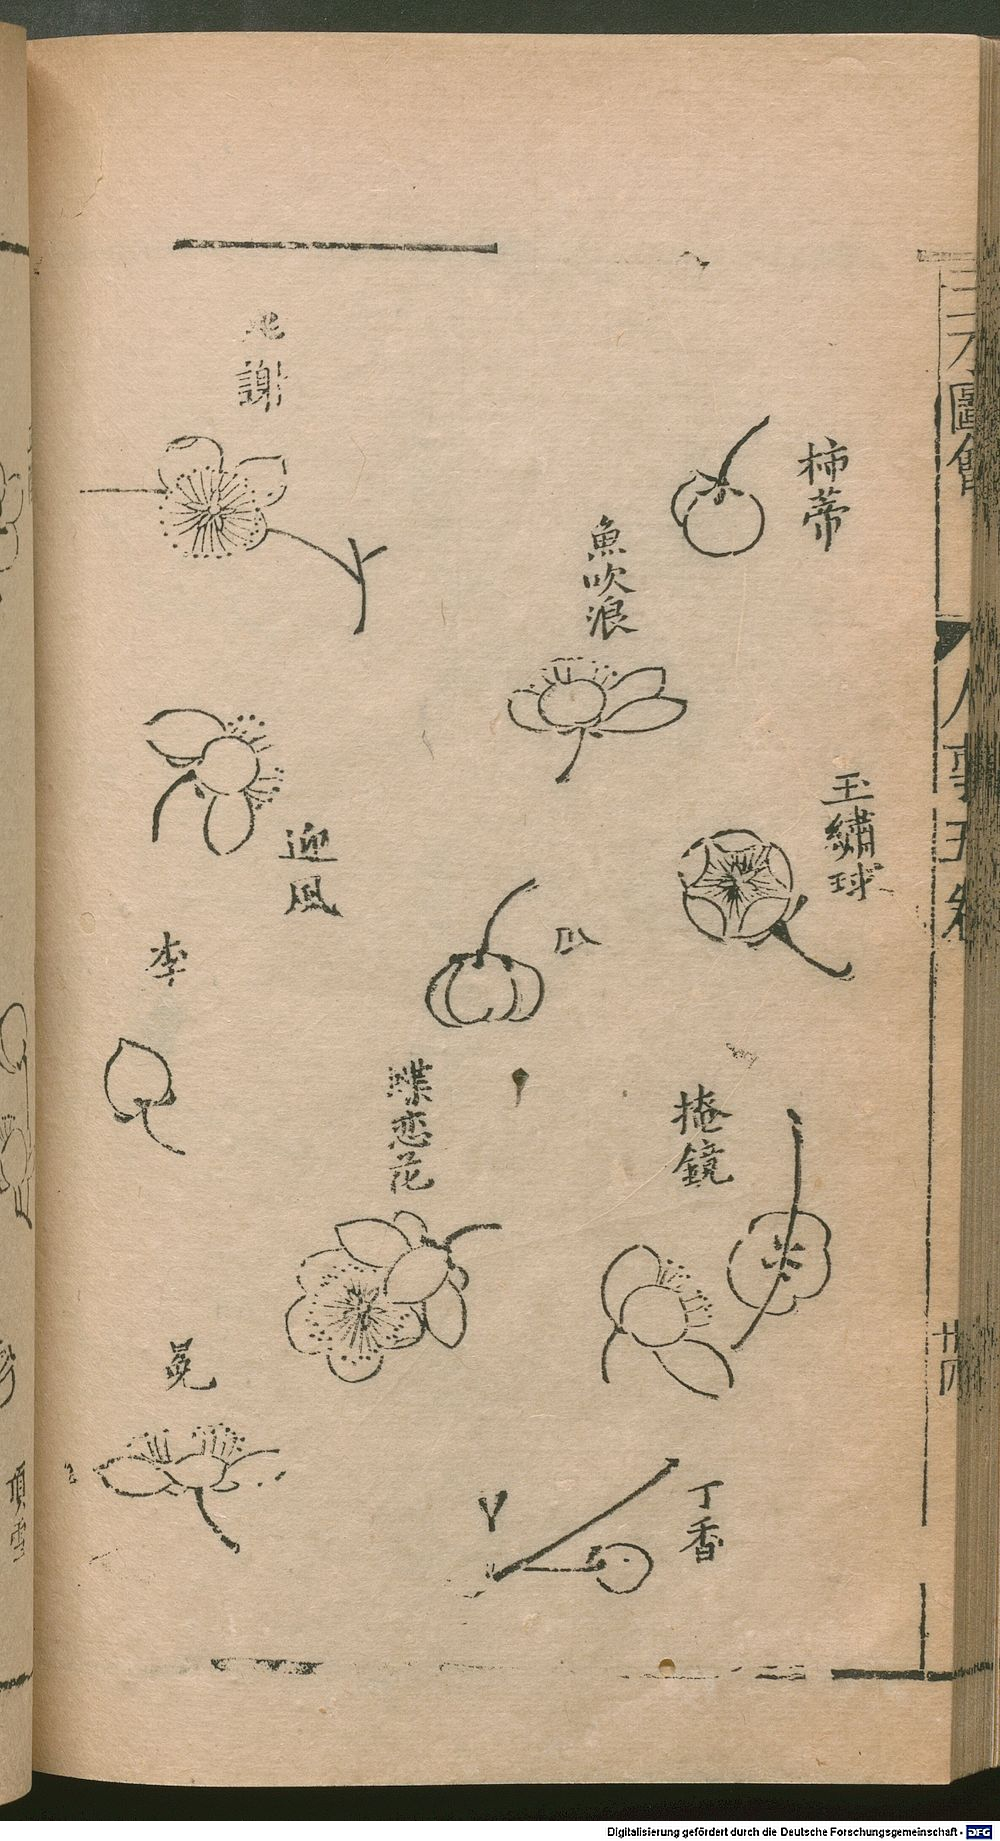 三才圖會
人事五卷
柿蒂
玉繡球
掩鏡
丁香
魚吹浪
瓜
蝶恋花
謝
迎風
李
兎
項雪
Digitalisierung gefördert durch die Deutsche Forschungsgemeinschaft - DFG